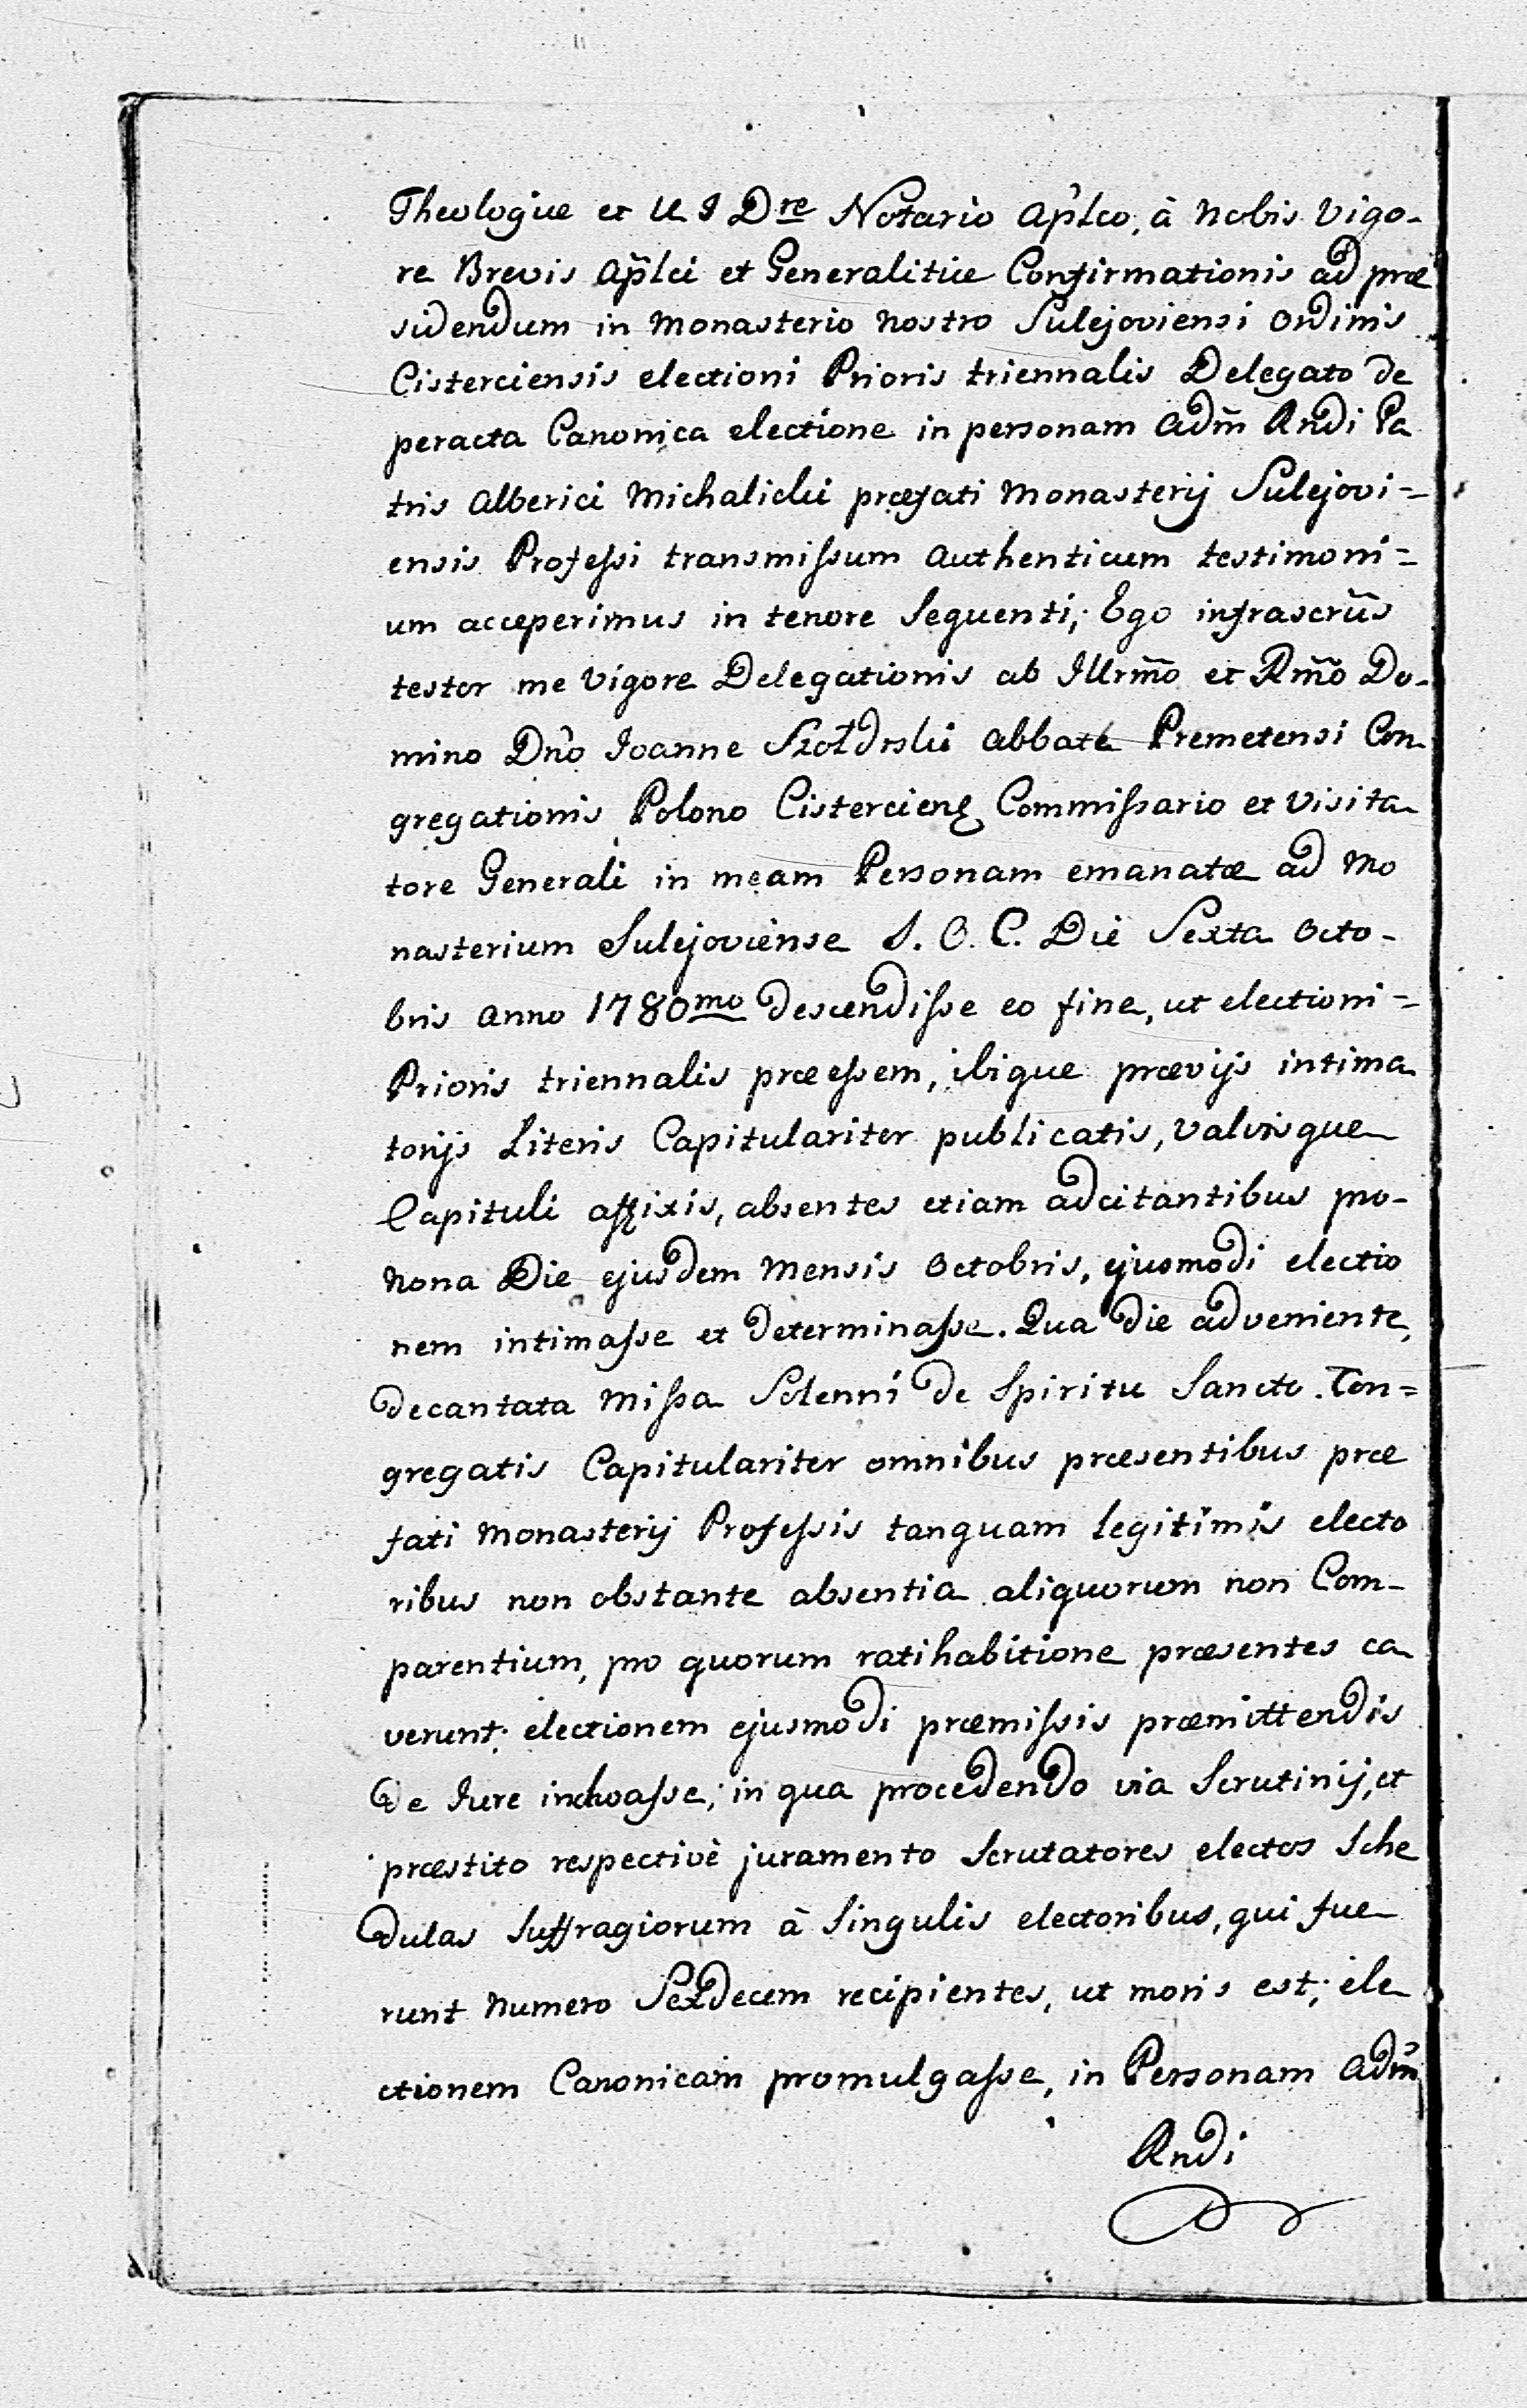 Theologiæ et U I Dre Notario Aplco, à Nobis Vigo-
re Brevis Aplci et Generalitiæ Confirmationis ad præ
sidendum in Monasterio Nostro Sulejoviensi Ordinis
Cisterciensis electioni Prioris triennalis Delegato de
peracta Canonica electione in personam Adm Rndi Pa
tris Alberici Michalicki præfati Monasterij Sulejovi=
ensis Professi transmissum Authenticum testimoni=
um acceperimus in tenore Sequenti; Ego infrascrus
testor me Vigore Delegationis ab Illrmo et Rmo Do-
mino Dno Joanne Szołdrski Abbate Premetensi Con
gregationis Polono Cisterciens Commissario et Visita
tore Generali in meam Personam emanatæ ad Mo
nasterium Sulejoviense S. O. C. Die Sexta Octo-
bris Anno 1780mo descendisse eo fine, ut electioni=
Prioris triennalis præessem, ibique prævijs intima
torijs Literis Capitulariter publicatis, Valvisque
Capituli affixis, absentes etiam adcitantibus pro-
Nona Die ejusdem Mensis Octobris, ejusmodi electio
nem intimasse et determinasse. Qua die adveniente,
decantata Missa Solenni de Spiritu Sancto. Con=
gregatis Capitulariter omnibus præsentibus præ
fati Monasterij Professis tanquam legitimis electo
ribus non obstante absentia aliquorum non Com-
parentium, pro quorum ratihabitione præsentes ca
verunt; electionem ejusmodi præmissis præmittendis
de Jure inchoasse; in qua procedendo via Scrutinij, et
præstito respectivè juramento Scrutatores electos Sche
dulas Suffragiorum à Singulis electoribus, qui fue
runt Numero Sexdecem recipientes, ut moris est; ele
ctionem Canonicam promulgasse, in Personam Adm
Rndi